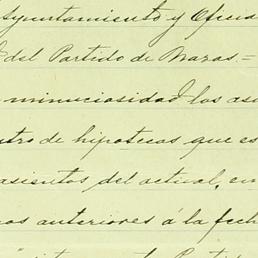 Ayuntamiento y Oficia
del Partido de Nazas.=
minuciosidad los asi
stro de hipotecas que es
asientos del actual, en
nos anteriores á la fech